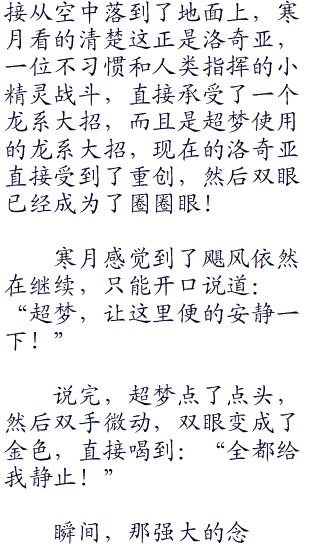 接从空中落到了地面上，寒
月看的清楚这正是洛奇亚，
一位不习惯和人类指挥的小
精灵战斗，直接承受了一个
龙系大招，而且是超梦使用
的龙系大招，现在的洛奇亚
直接受到了重创，然后双眼
已经成为了圈圈眼！
寒月感觉到了飓风依然
在继续，只能开口说道：
“超梦，让这里便的安静一
下！”
说完，超梦点了点头，
然后双手微动，双眼变成了
金色，直接喝到：“全都给
我静止！”
瞬间，那强大的念